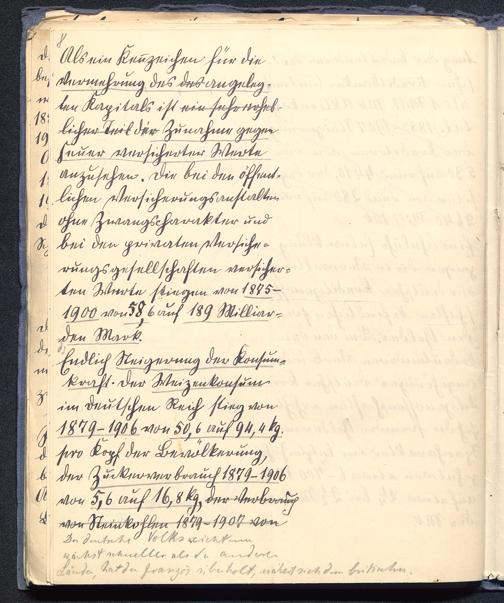 8
Als ein Kennzeichen für die
Vermehrung des des angeleg-
ten Kapitals ist ein sehr erheb-
licher Teil der Zunahme gegen
Feuer versicherter Werte
anzusehen. Die bei den öffent-
lichen Versicherungsanstalten
ohne Zwangscharakter und
bei den privaten Versiche-
rungsgesellschaften versicher-
ten Werte stiegen von 1875-
1900 von 58,6 auf 189 Milliar-
den Mark.
Endlich Steigerung der Konsum-
kraft. Der Weizenkonsum
im deutschen Reich stieg von
1879-1906 von 50,6 auf 94,4 kg.
pro Kopf der Bevölkerung,
der Zuckerverbrauch 1879-1906
von 5,6 auf 16,8 kg, der Verbrauch
von Steinkohlen 1879-1907 von
Der deutsche Volksreichtum
wächst schneller als die anderen
Länder, hat den französ überholt, nähert sich dem britischen.